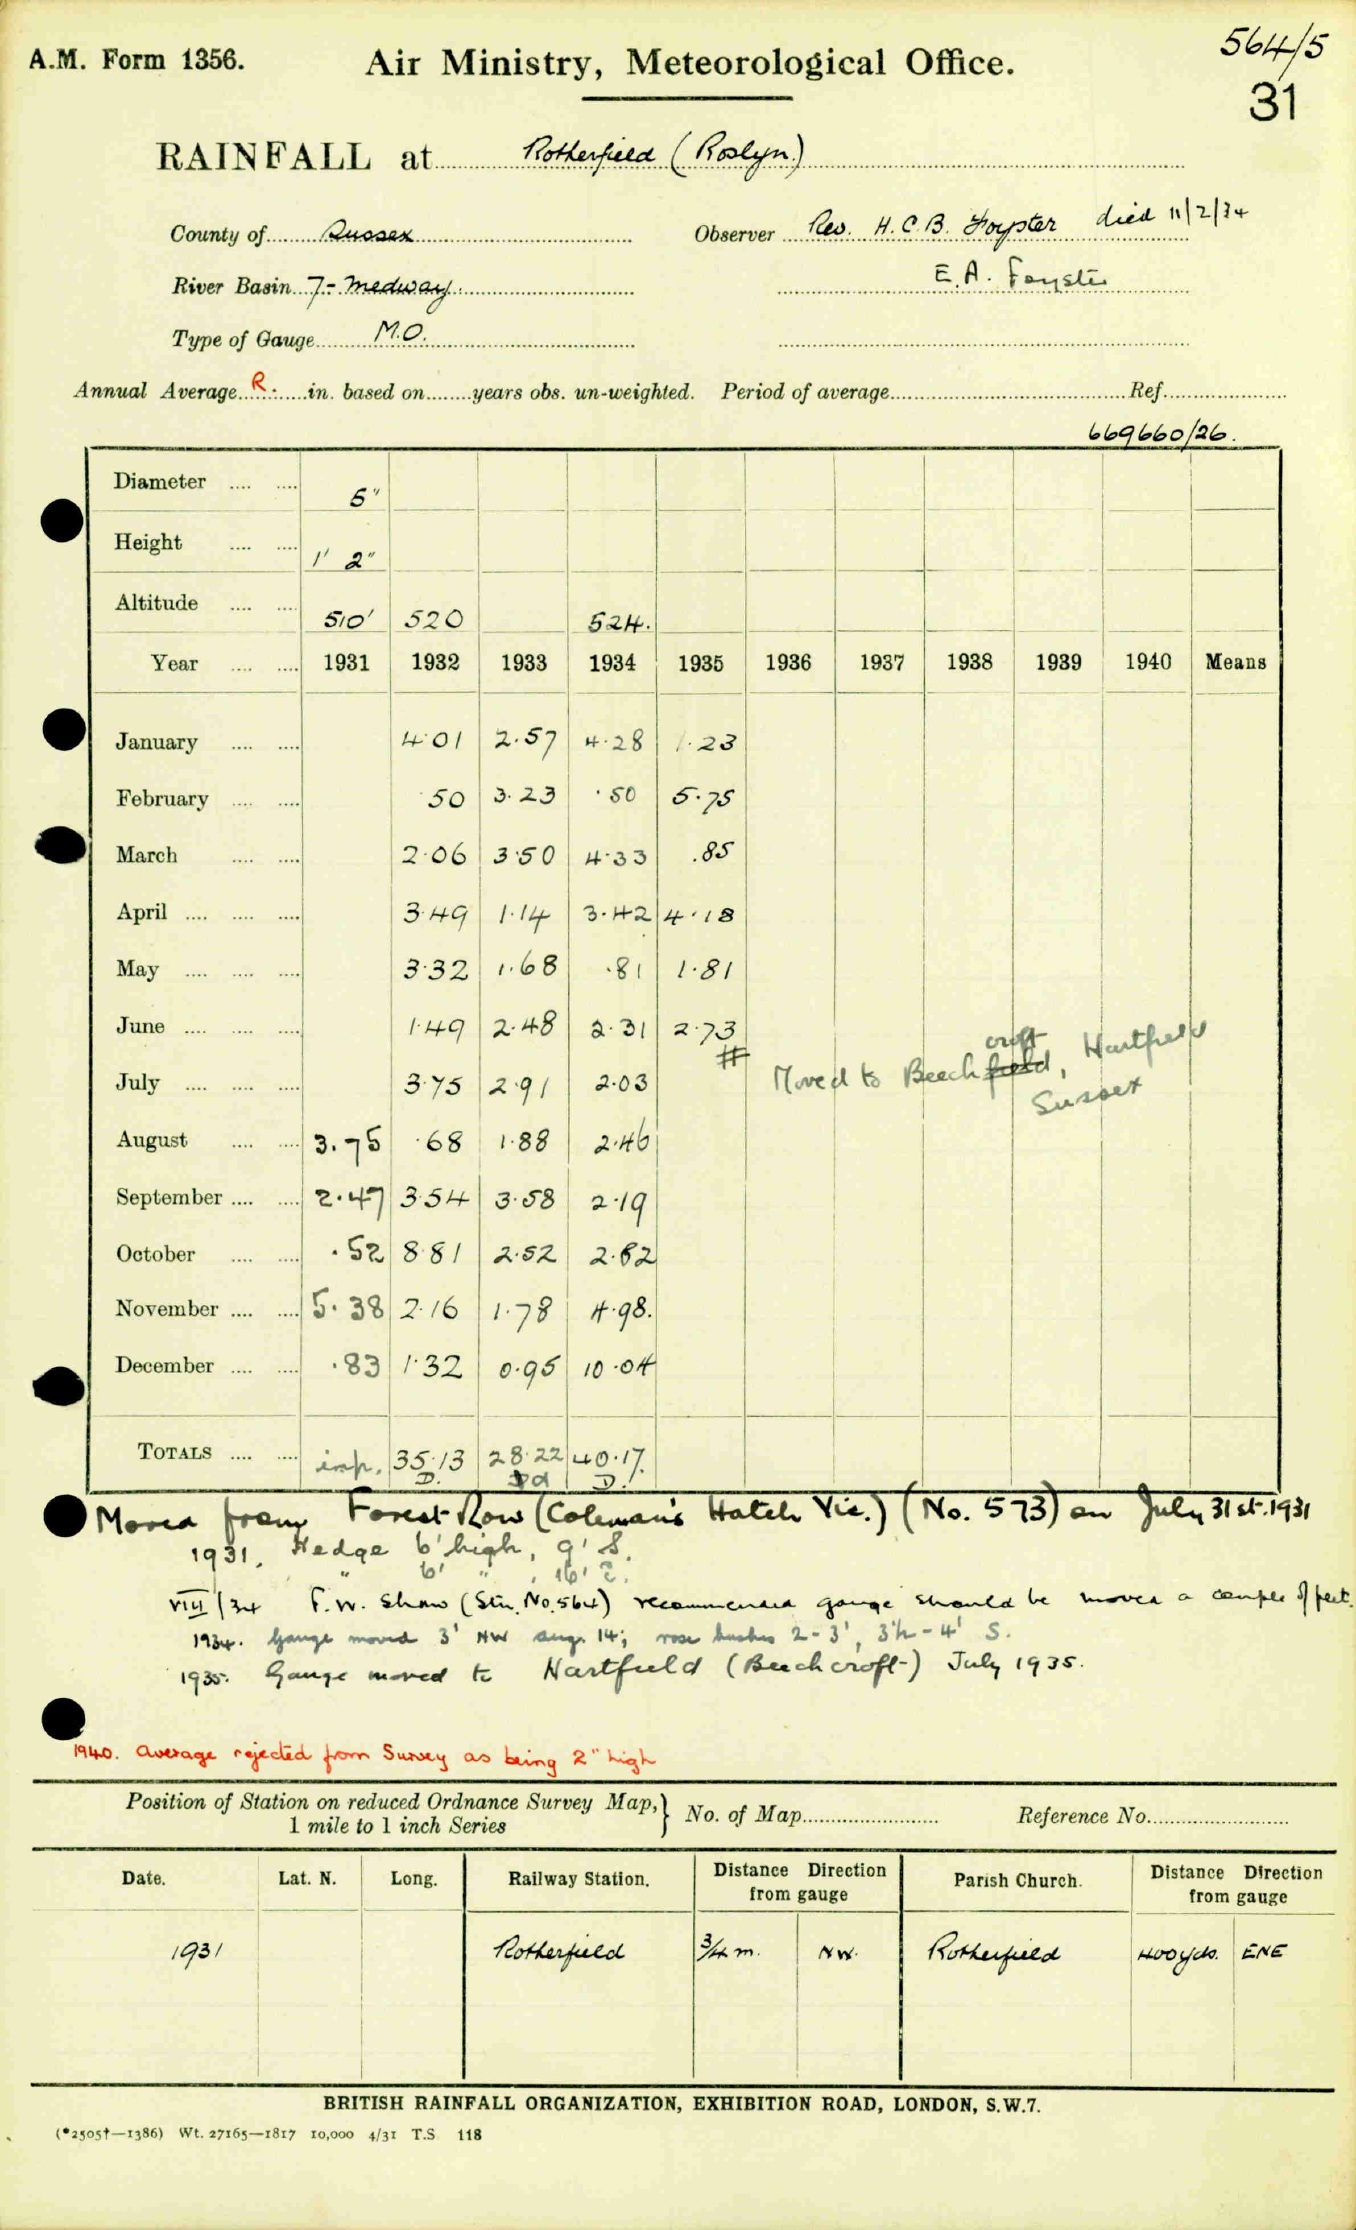 564/5
A.M. Form 1356. Air Ministry, Meteorological Office.
31
RAINFALL at Rotherfield (Roslyn.)
County of Sussex Observer Rev. H.C.B. Foyster died 11/2/34
River Basin 7- Medway. E.A. Foyster
Type of Gauge M.O.
Annual Average R. in. based on years obs. un-weighted. Period of average Ref.
669660/26.
Diameter 5"
Height 1' 2"
Altitude 510' 520 524.
Year 1931 1932 1933 1934 1935 1936 1937 1938 1939 1940 Means
January 4.01 2.57 4.28 1.23
February .50 3.23 .50 5.75
March 2.06 3.50 4.33 .85
April 3.49 1.14 3.42 4.18
May 3.32 1.68 .81 1.81
June 1.49 2.48 2.31 2.73
croft
# Moved to Beech field, Hartfield
Sussex
July 3.75 2.91 2.03
August 3.75 .68 1.88 2.46
September 2.47 3.54 3.58 2.19
October .52 8.81 2.52 2.82
November 5.38 2.16 1.78 4.98.
December .83 1.32 0.95 10.04
TOTALS imp. 35.13 28.22 40.17.
D. D.
Moved from Forest Row (Coleman's Hatch Vic.) (No. 573) on July 31st. 1931
1931. Hedge 6' high, 9' S.
" 6' " , 16' E.
VIII/34 F.W. Shaw (Stn. No. 564) recommended gauge should be moved a couple of feet.
1934. Gauge moved 3' NW Aug. 14; rose bushes 2-3', 3½-4' S.
1935. Gauge moved to Hartfield (Beechcroft) July 1935.
1940. Average rejected from Survey as being 2" high
Position of Station on reduced Ordnance Survey Map, } No. of Map Reference No.
1 mile to 1 inch Series
Date. Lat. N. Long. Railway Station. Distance Direction from gauge Parish Church. Distance Direction from gauge
1931 Rotherfield ¾ m. NW. Rotherfield 400 yds. ENE
BRITISH RAINFALL ORGANIZATION, EXHIBITION ROAD, LONDON, S.W.7.
(*2505†—1386) Wt. 27165—1817 10,000 4/31 T.S 118